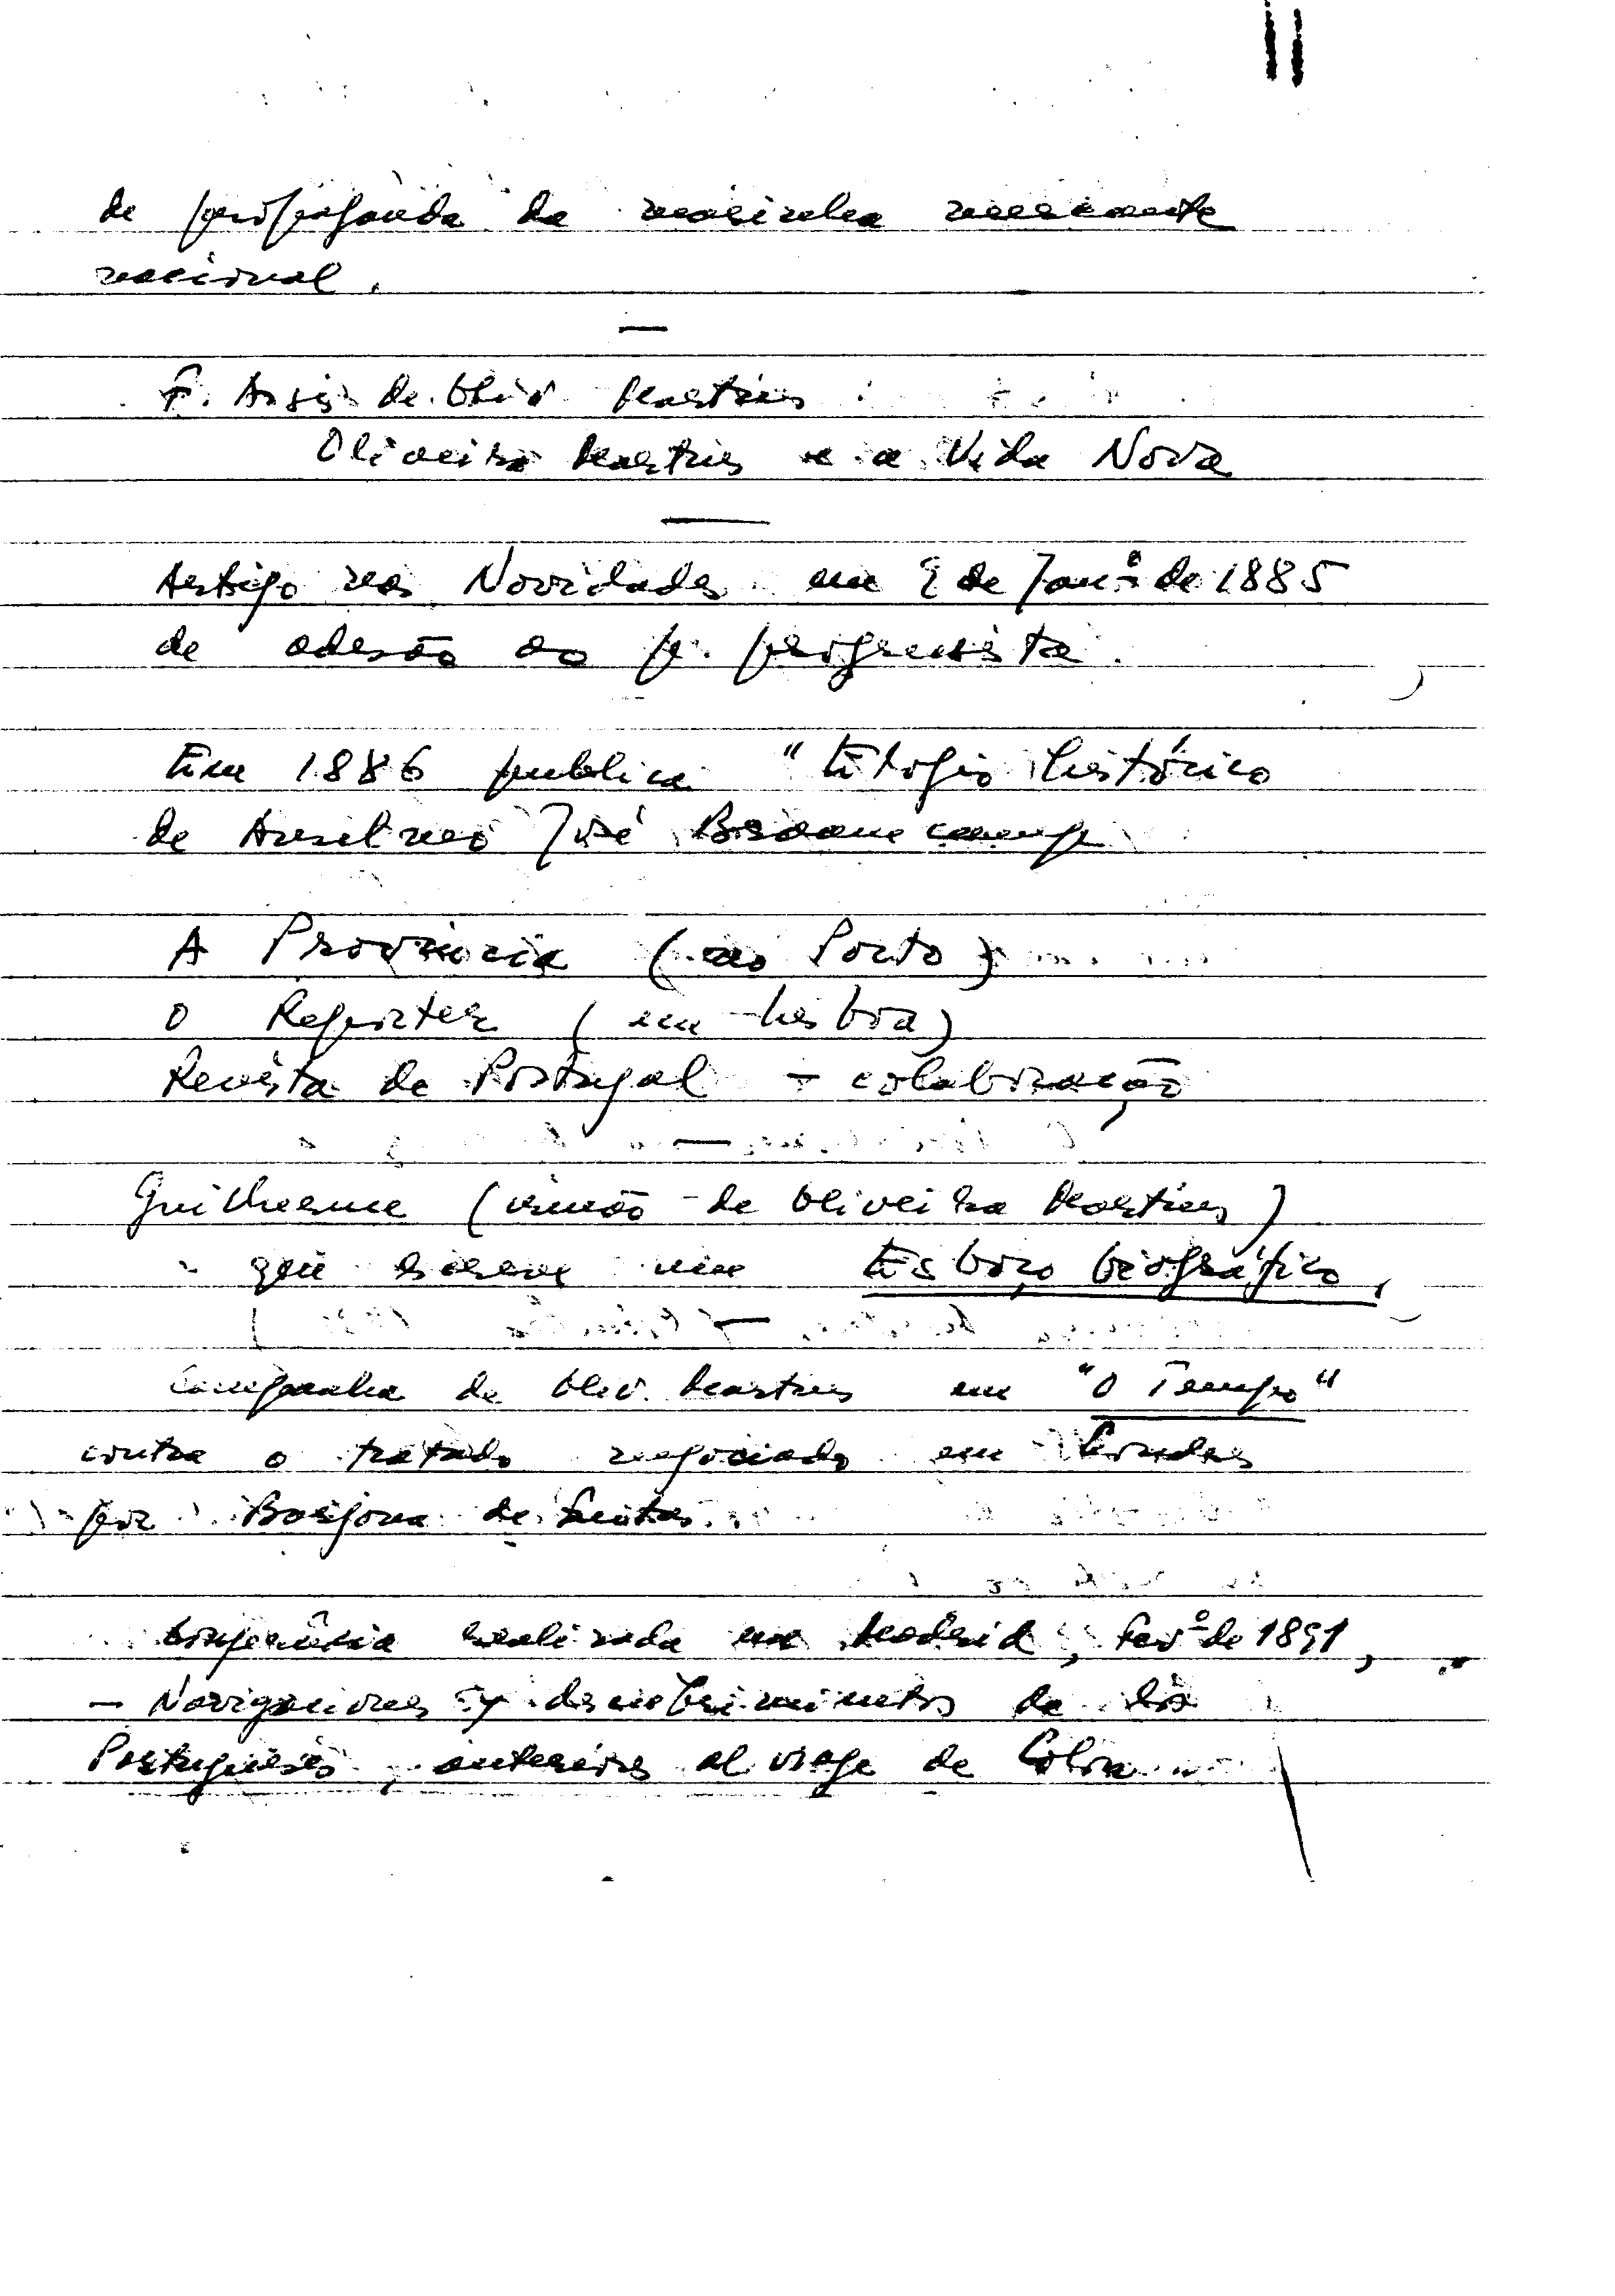 de propaganda da marinha mercante
nacional.
F. Assis de Oliv. Martins
Oliveira Martins e a Vida Nova
Artigo nas Novidades em 9 de Janº de 1885
de adesão ao p. progressista.
Em 1886 publica "Elogio histórico
de Anselmo José Braamcamp
A Província (no Porto)
O Reporter (em Lisboa)
Revista de Portugal - colaboração
Guilherme (irmão de Oliveira Martins)
que escreve um Esboço biográfico,
Campanha de Oliv. Martins em "O Tempo"
contra o tratado negociado em Londres
por Barjona de Freitas
Conferência realizada em Madrid, Fevº de 1891,
- Navigaciones y descobrimientos de los
Portugueses, anteriores al viage de Colon